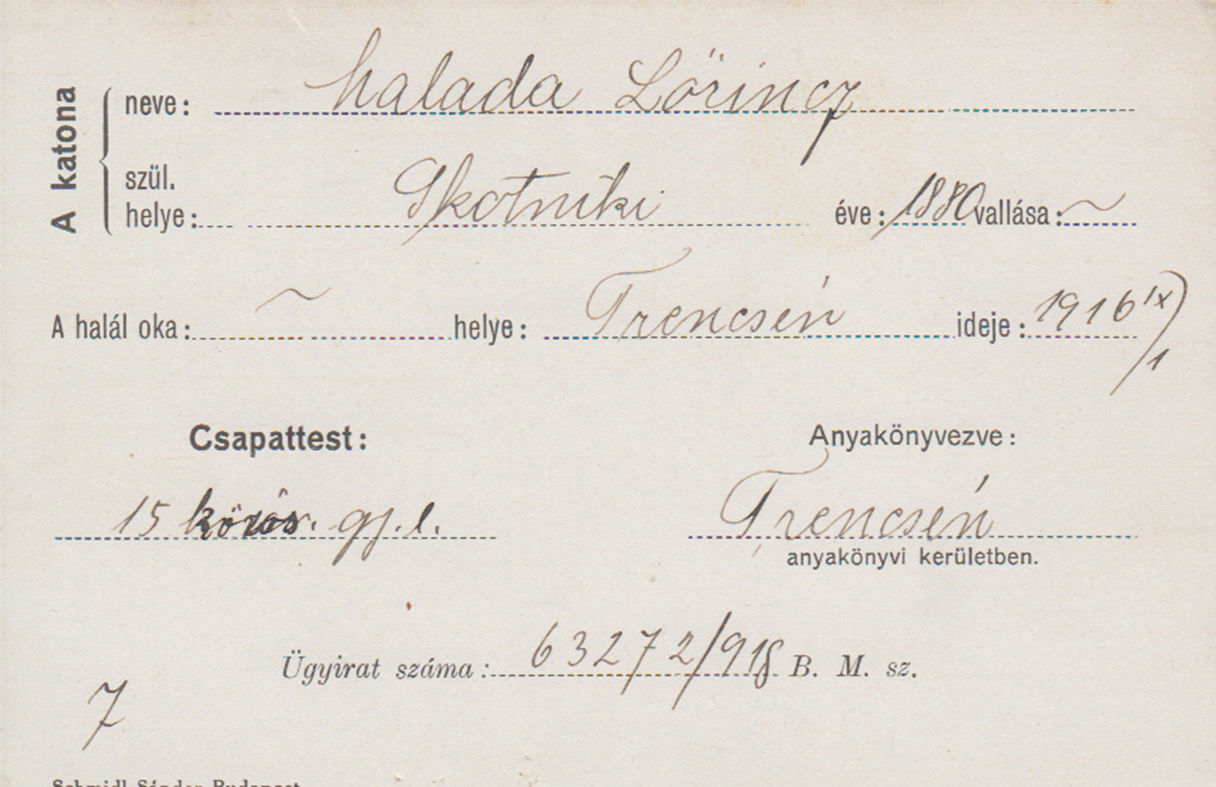 A katona
neve: Halada Lőrincz
szül.
helye: Skotniki éve: 1880 vallása: ~
A halál oka: ~ helye: Trencsén ideje: 1916 IX/1
Csapattest: Anyakönyvezve:
15 közös. gy. e. Trencsén
anyakönyvi kerületben.
Ügyirat száma: 63272/918 B. M. sz.
7
Schmidl Sándor Budapest